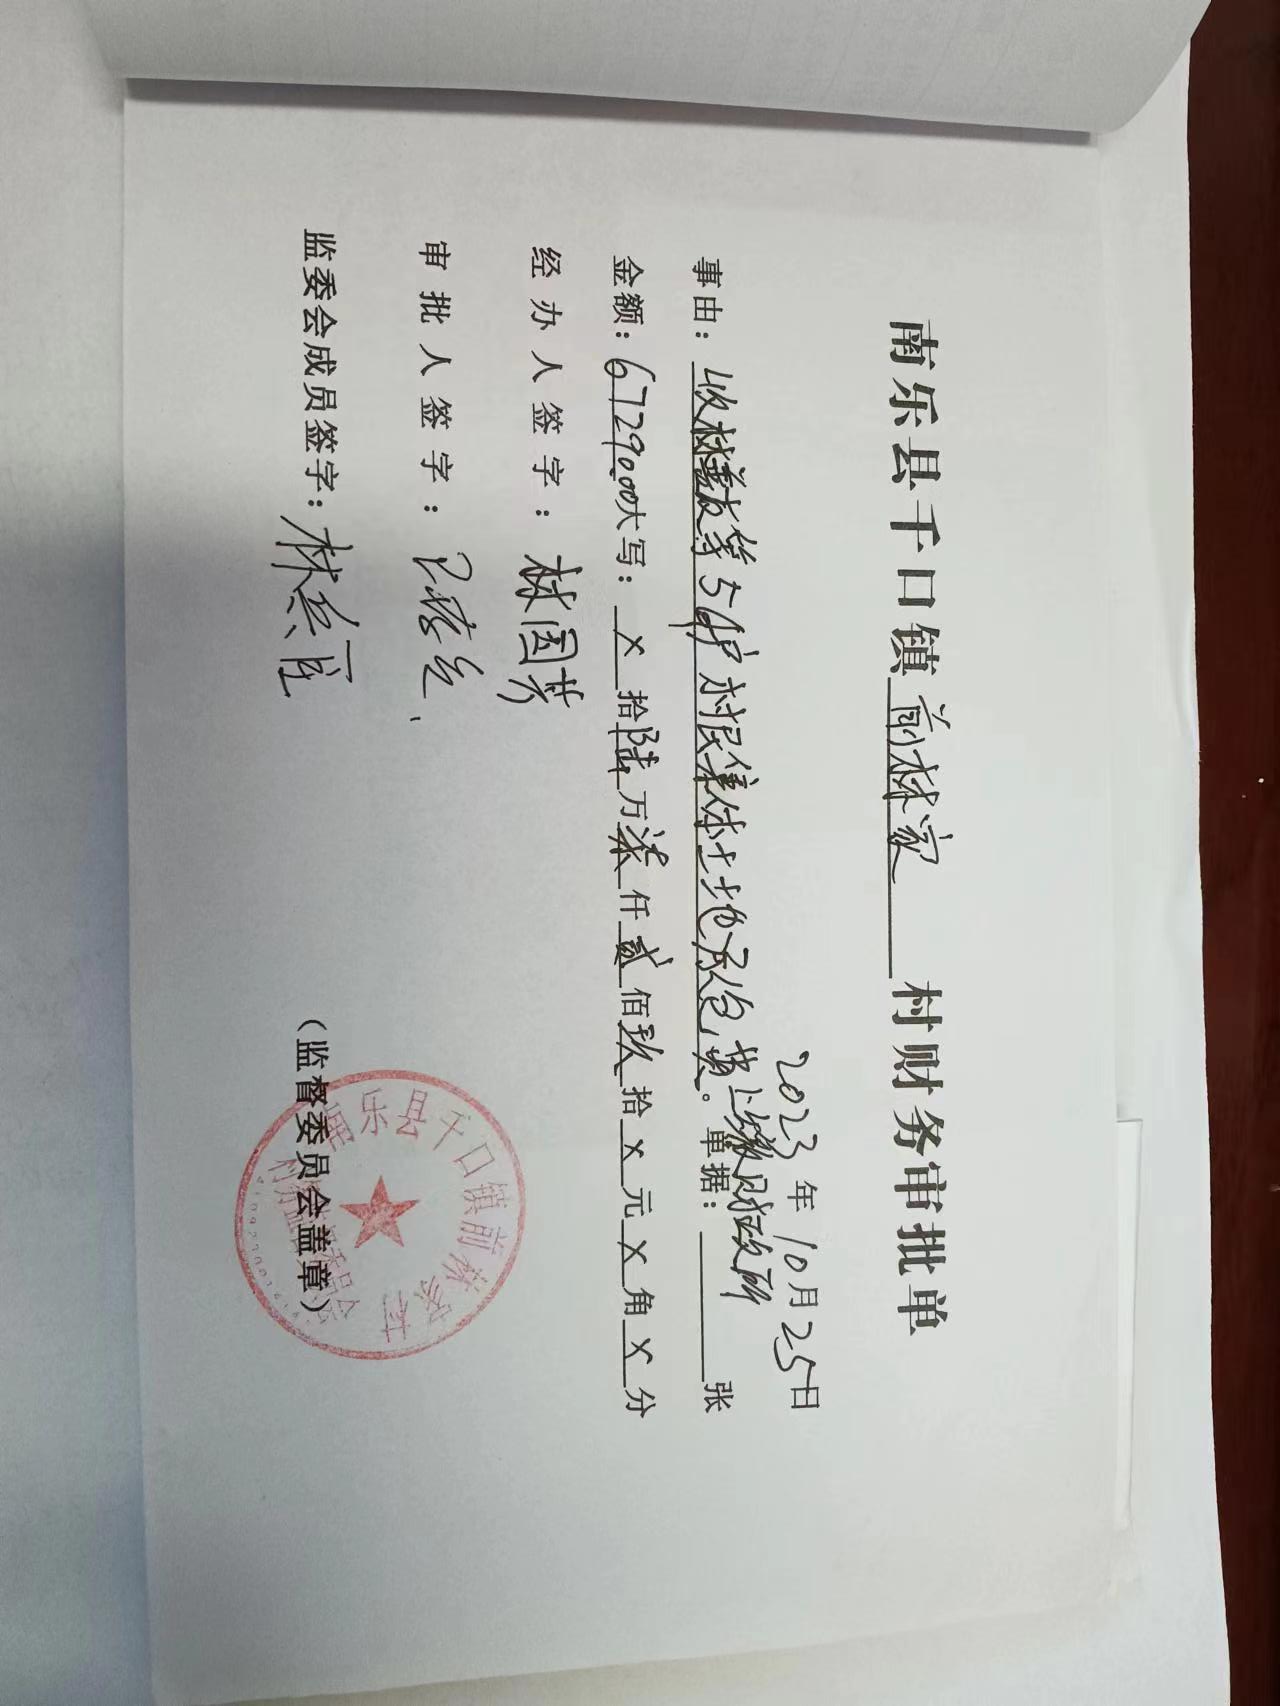 南乐县千口镇前林家村财务审批单
2023年10月25日
事由：收林等54户村民集体土地承包费。上缴财政所 单据：张
金额：67290.00大写：x拾陆万柒仟贰佰玖拾x元x角x分
经办人签字：林国芳
审批人签字：
监委会成员签字：林
（监督委员会盖章）
南乐县千口镇前林家村
村务监督委员会